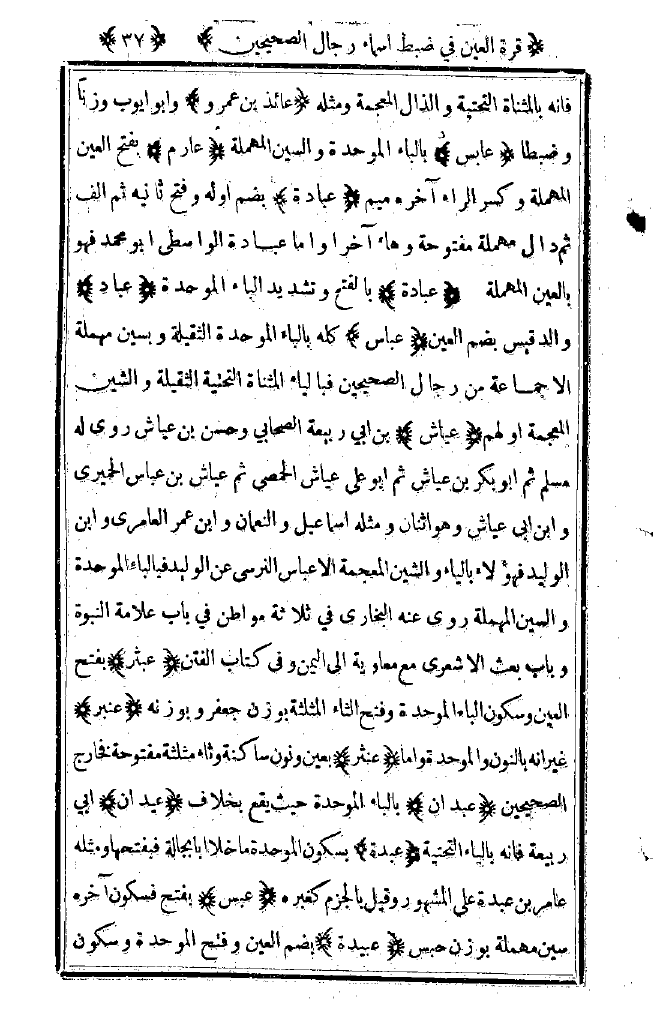 ﴿ قرة العين في ضبط اسماء رجال الصحيحين ﴾ ﴿ ٣٧ ﴾
فانه بالمثناة التحتية والذال المعجمة ومثله ﴿ عائذ بن عمرو ﴾ وابو ايوب وزنا
وضبطا ﴿ عابس ﴾ بالباء الموحدة والسين المهملة ﴿ عارم ﴾ بفتح العين
المهملة وكسر الراء آخره ميم ﴿ عبادة ﴾ بضم اوله وفتح ثانيه ثم الف
ثم دال مهملة مفتوحة وهاء آخرا واما عبادة الواسطى ابو محمد فهو
بالعين المهملة ﴿ عبادة ﴾ بالفتح وتشديد الباء الموحدة ﴿ عباد ﴾
والد قيس بضم العين ﴿ عباس ﴾ كله بالباء الموحدة الثقيلة وبسين مهملة
الا جماعة من رجال الصحيحين فبالياء المثناة التحتية الثقيلة والشين
المعجمة اولهم ﴿ عياش ﴾ بن ابي ربيعة الصحابي وحسن بن عياش روى له
مسلم ثم ابو بكر بن عياش ثم ابو على عياش الحمصي ثم عياش بن عباس الحميرى
وابن ابي عياش وهو اثنان ومثله اسماعيل والنعمان وابن عمر العامرى وابن
الوليد فهؤلاء بالياء والشين المعجمة الا عباس النرسى عن الوليد فبالباء الموحدة
والسين المهملة روى عنه البخارى في ثلاثة مواطن في باب علامة النبوة
وباب بعث الاشعرى مع معاوية الى اليمن وفى كتاب الفتن ﴿ عبثر ﴾ بفتح
العين وسكون الباء الموحدة وفتح الثاء المثلثة بوزن جعفر وبوزنه ﴿ عنبر ﴾
غير انه بالنون والموحدة واما ﴿ عنثر ﴾ بعين ونون ساكنة وثاء مثلثة مفتوحة فخارج
الصحيحين ﴿ عبدان ﴾ بالباء الموحدة حيث يقع بخلاف ﴿ عيدان ﴾ ابي
ربيعة فانه بالياء التحتية ﴿ عبدة ﴾ بسكون الموحدة ما خلا ابا بجالة فبفتحها ومثله
عامر بن عبدة على المشهور وقيل بالجزم كغيره ﴿ عبس ﴾ بفتح فسكون آخره
سين مهملة بوزن حبس ﴿ عبيدة ﴾ بضم العين وفتح الموحدة وسكون